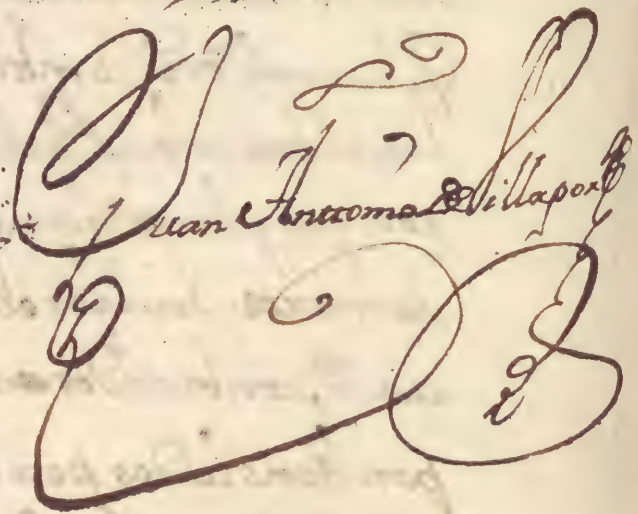 Juan Anttonio de Villaport